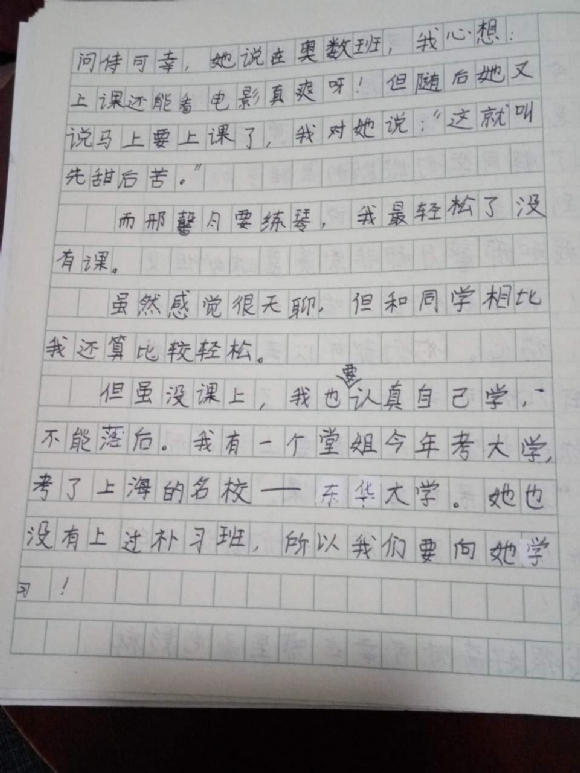 问侍可幸，她说在奥数班，我心想：
上课还能看电影真爽呀！但随后她又
说马上要上课了，我对她说：“这就叫
先甜后苦。”
而邢馨月要练琴，我最轻松了没
有课。
虽然感觉很无聊，但和同学相比
我还算比较轻松。
但虽没课上，我也要认真自己学，
不能落后。我有一个堂姐今年考大学，
考了上海的名校——东华大学。她也
没有上过朴习班，所以我们要向她学
习！